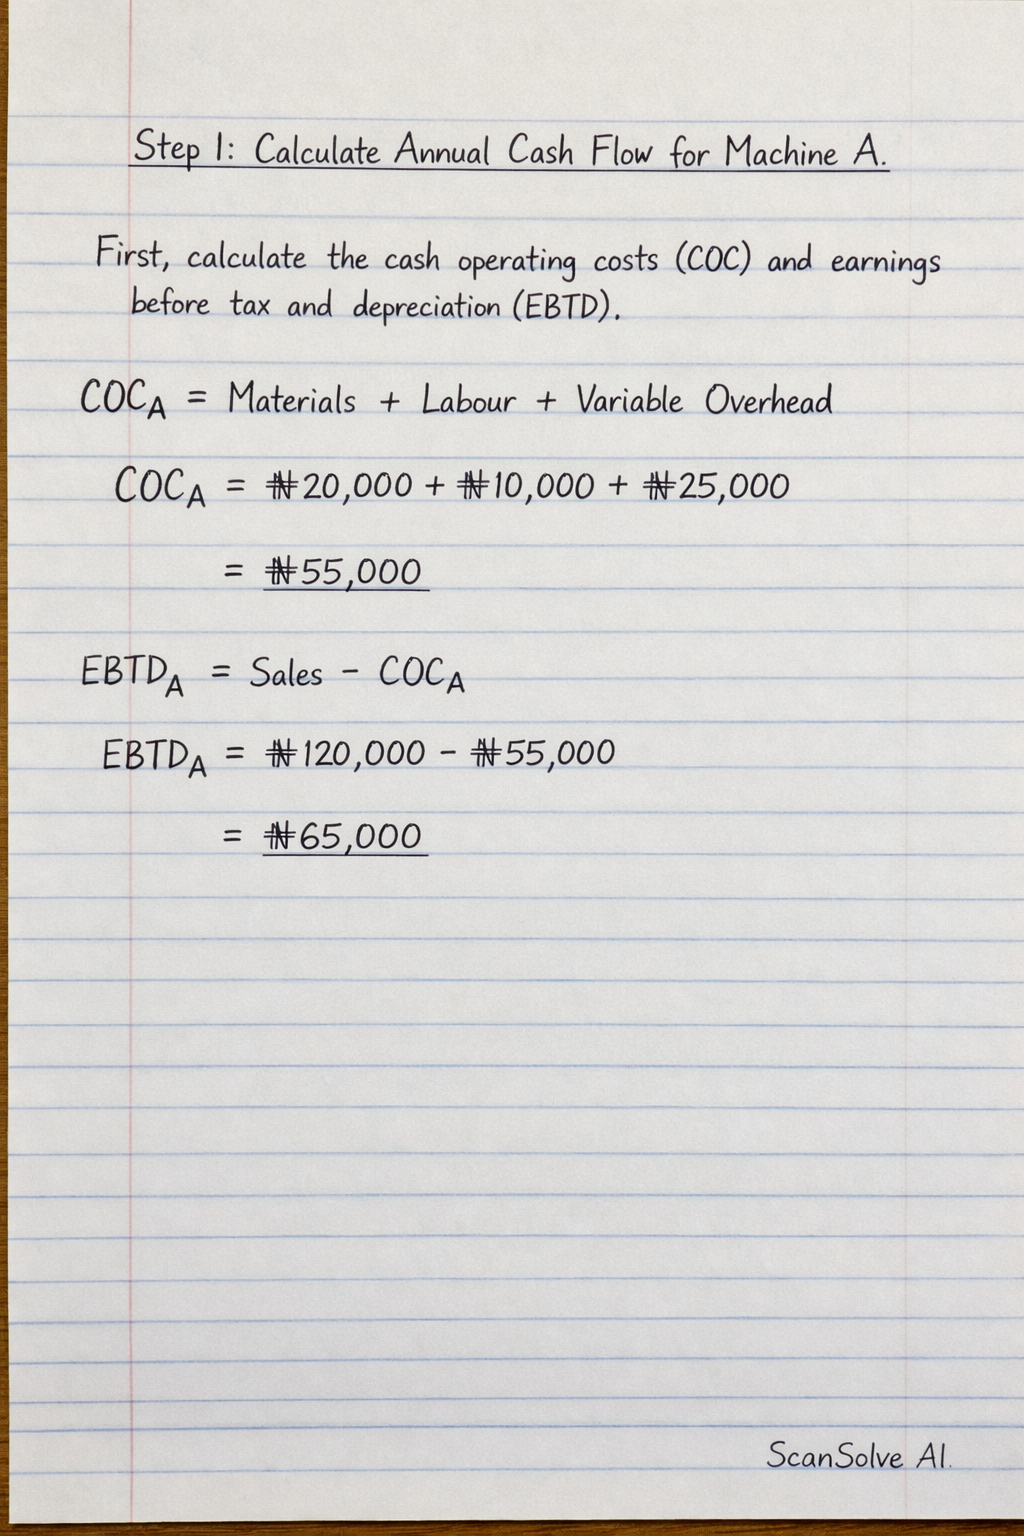 Step 1: Calculate Annual Cash Flow for Machine A.
First, calculate the cash operating costs (COC) and earnings
before tax and depreciation (EBTD).
COC_A = Materials + Labour + Variable Overhead
COC_A = ₦20,000 + ₦10,000 + ₦25,000
= ₦55,000
EBTD_A = Sales - COC_A
EBTD_A = ₦120,000 - ₦55,000
= ₦65,000
ScanSolve AI.